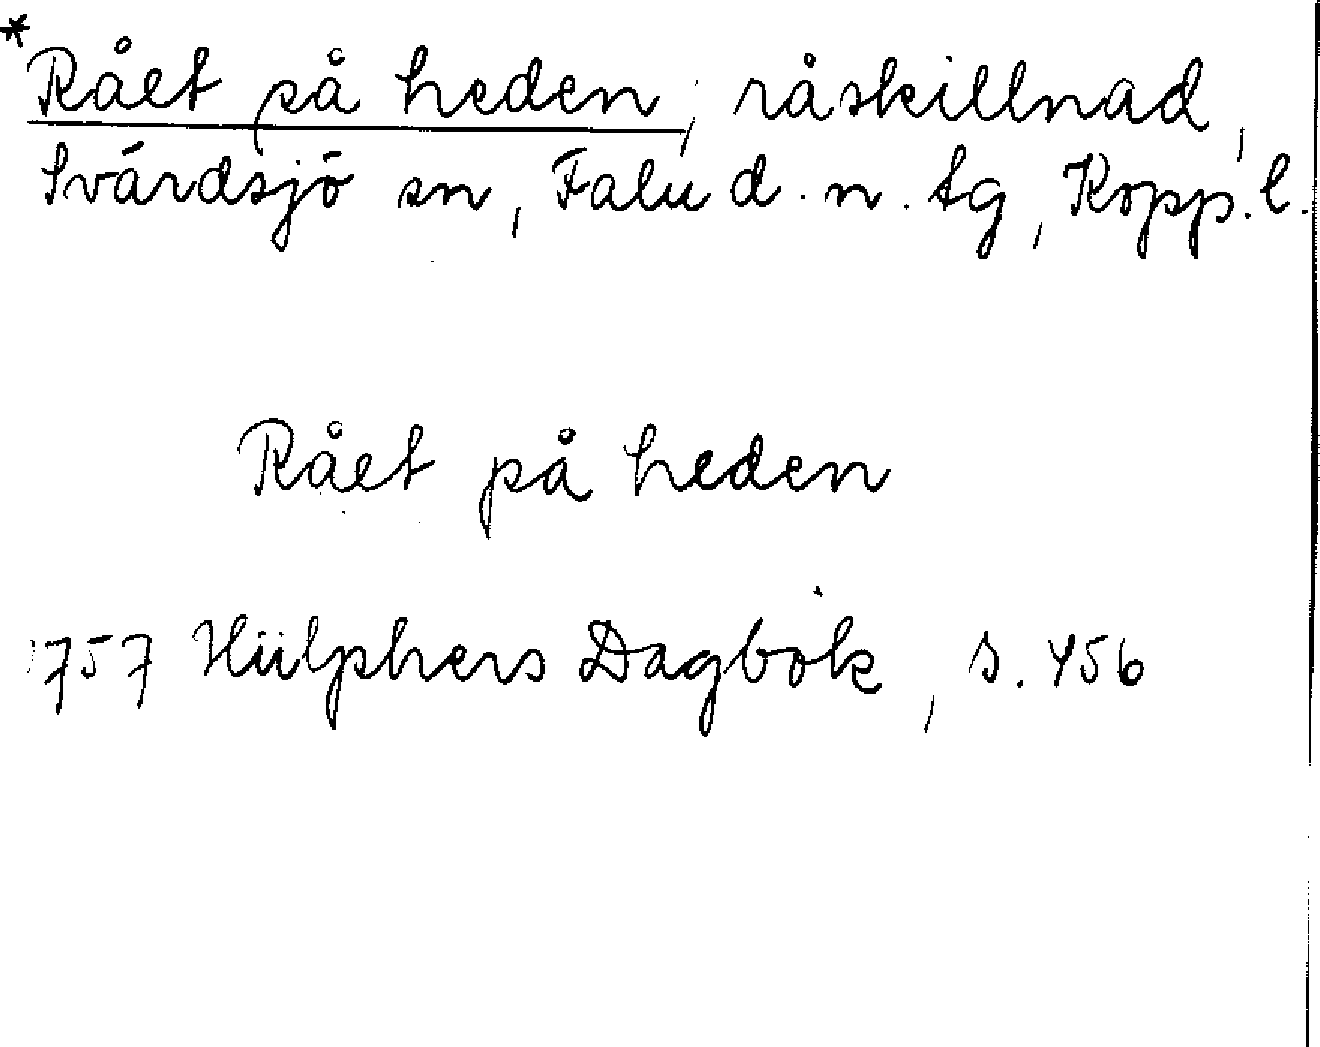 *Rået på heden, råskillnad,
Svärdsjö sn, Falu d.n. tg, Kopp.l.
Rået på heden
1757 Hülphers Dagbok, s. 456